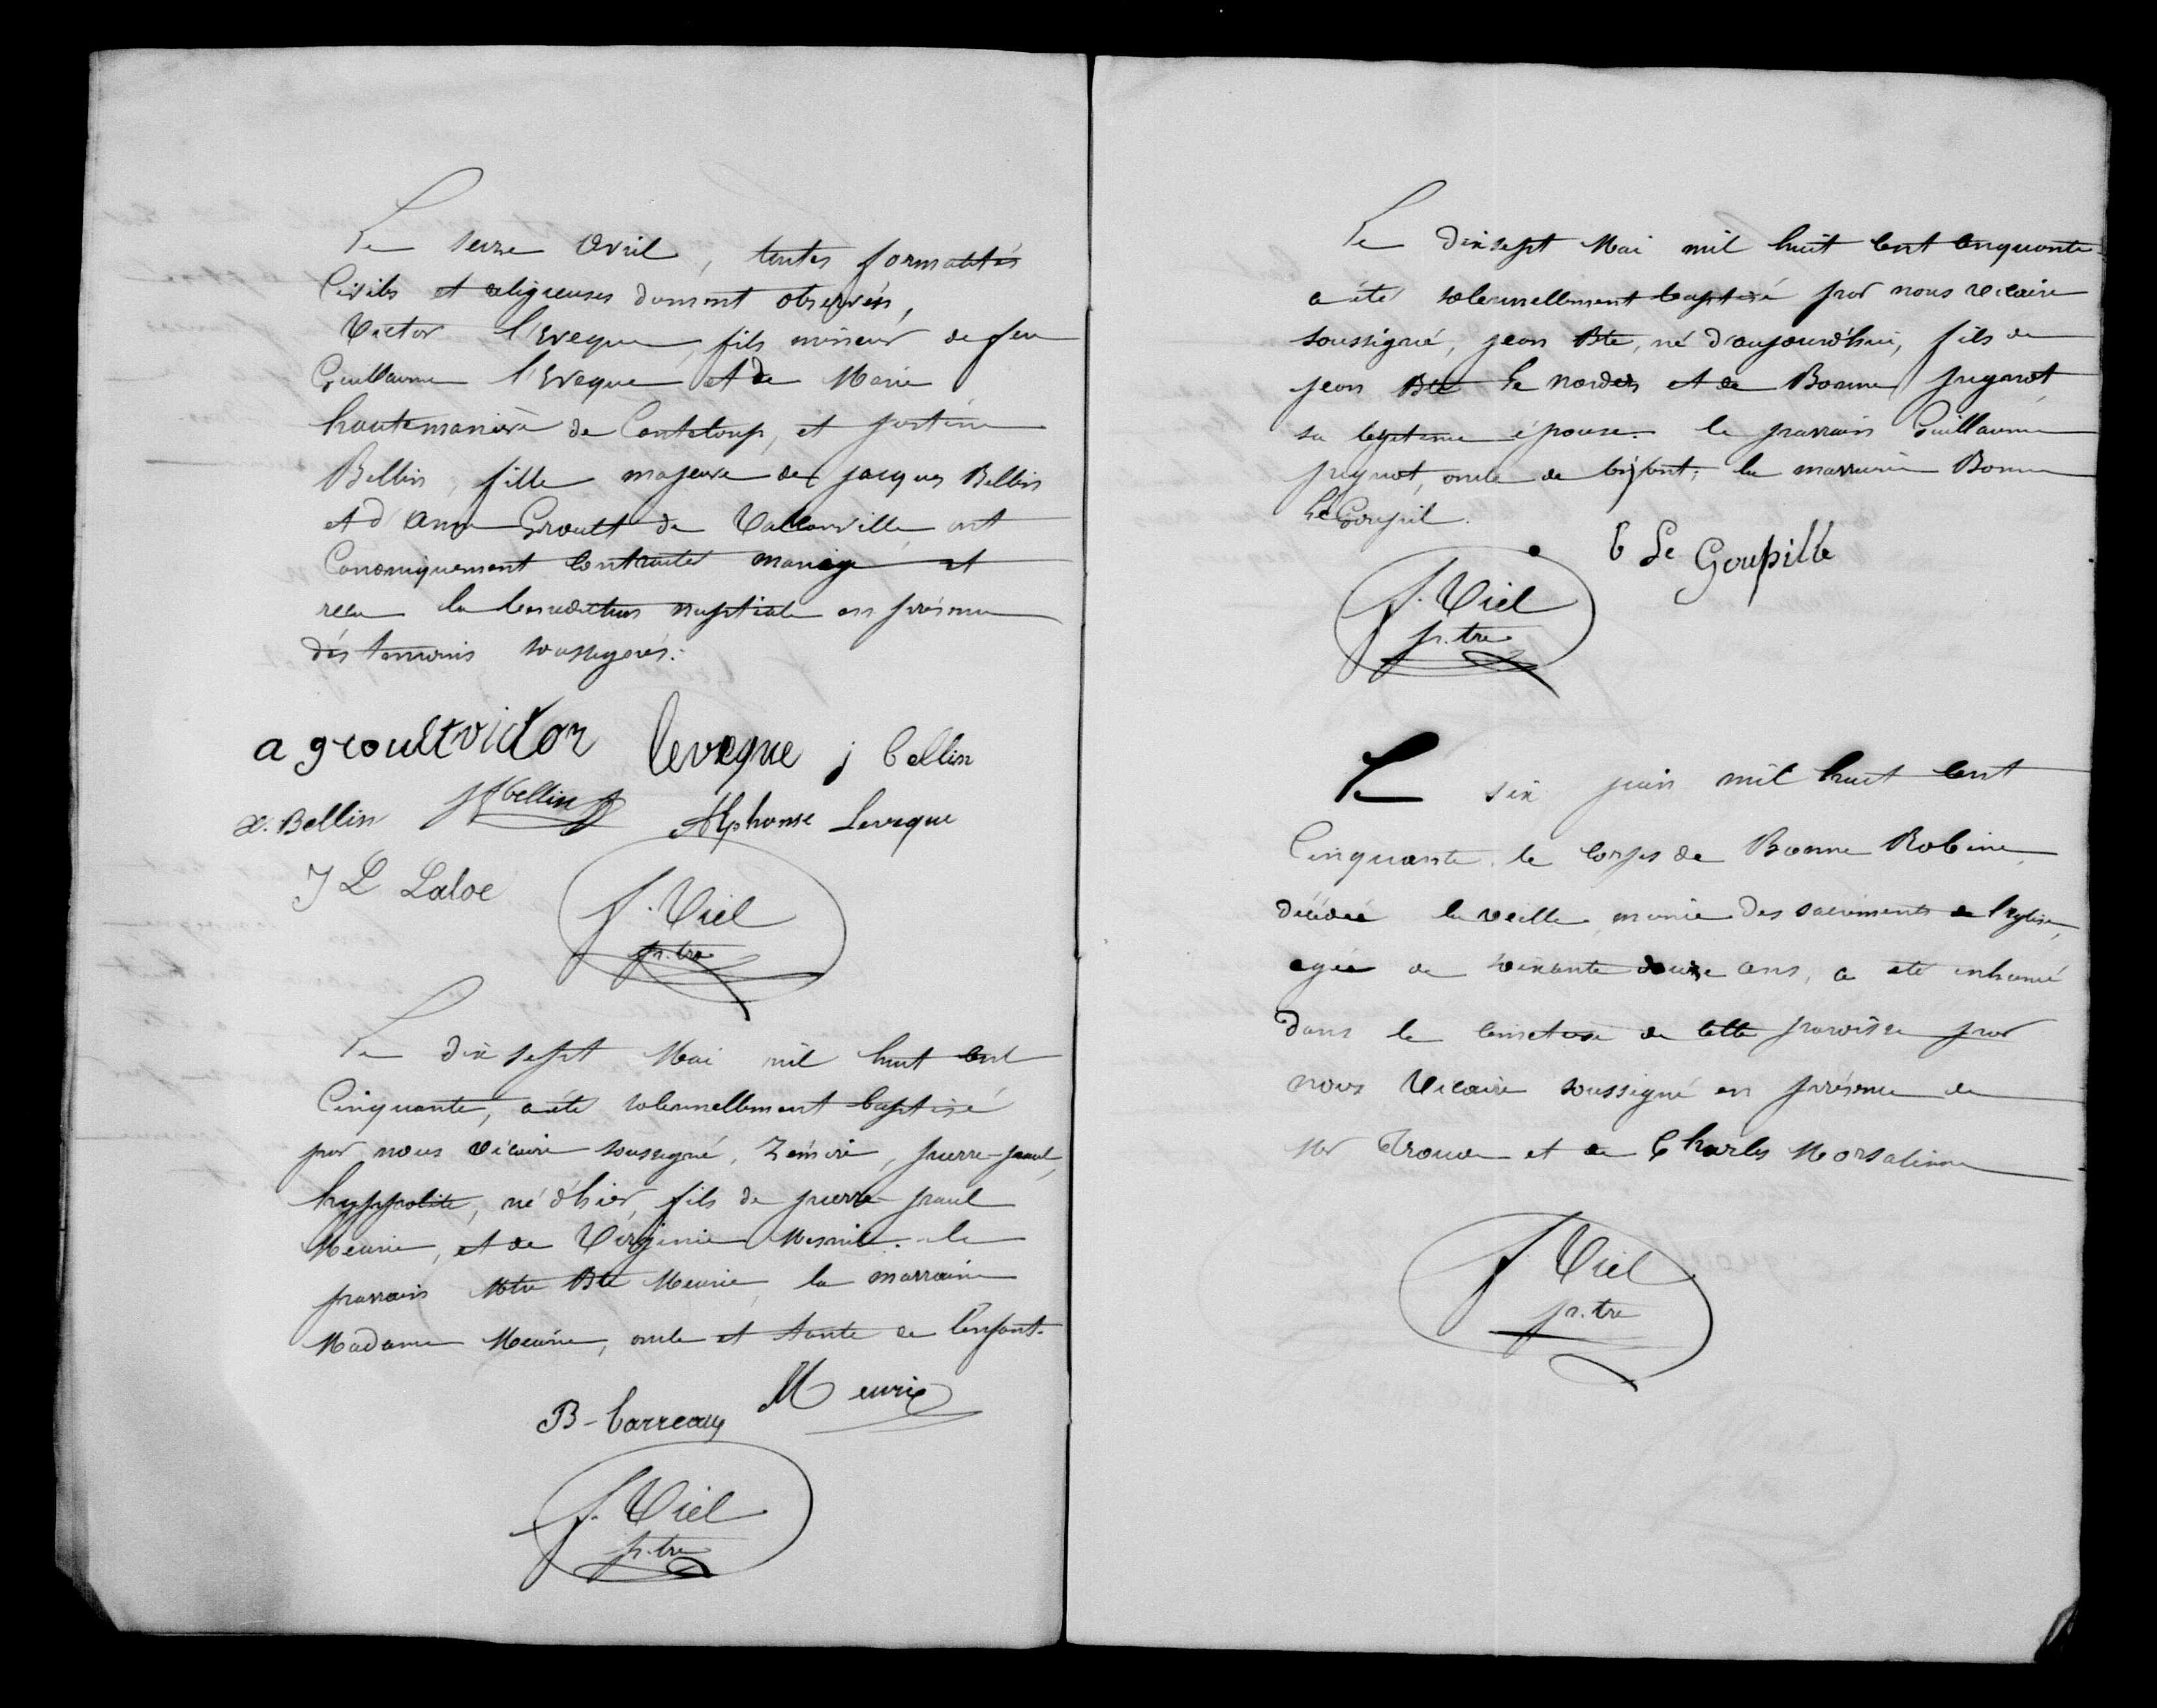 Le seize avril, toutes formalités
Civiles et religieuses dument observées,
Victor l'Eveque, fils mineur de feu
Guillaume l'Eveque et de Marie
hautemanière de Canteloup, et justine
Bellin, fille majeure de jacques Bellin
et d'anne Groult de Valcanville, ont
Canoniquement contracté mariage et
recu la benediction nuptiale en présence
dés temoins soussignés:
a groult victor leveque j bellin
x. Bellin bellin Alphonse Leveque
J L Laloe
f. Viel
p.tre
Le dix sept Mai mil huit cent
Cinquante, a été solennellement baptisé
par nous vicaire soussigné, Zémire, pierre-paul,
hyppolite, né d'hier, fils de pierre paul
Meurie, et de Virginie Mesnil. le
parrain Bte Meurie, la marraine
Madame Meurie, oncle et tante de l'enfant.
B-Carreaux Meurie
f. Viel
p.tre
Le dix sept Mai mil huit cent cinquante
a été solennellement baptisé par nous vicaire
soussigné, jean Bte, né d'aujourd'hui, fils de
jean Bte le nordez et de Bonne pignot,
sa légitime épouse. le parrain Guillaume
pignot, oncle de l'enfant; la marraine Bonne
le Goupil.
b Le Goupille
f. Viel
p.tre
Le six juin mil huit cent
Cinquante, le corps de Bonne Robine,
décédée la veille, munie des sacrements de l'église,
agée de soixante douze ans, a été inhumé
dans le cimetiere de cette paroisse par
nous Vicaire soussigné en présence de
Mr Troude et de Charles Morsaline
f Viel
p.tre